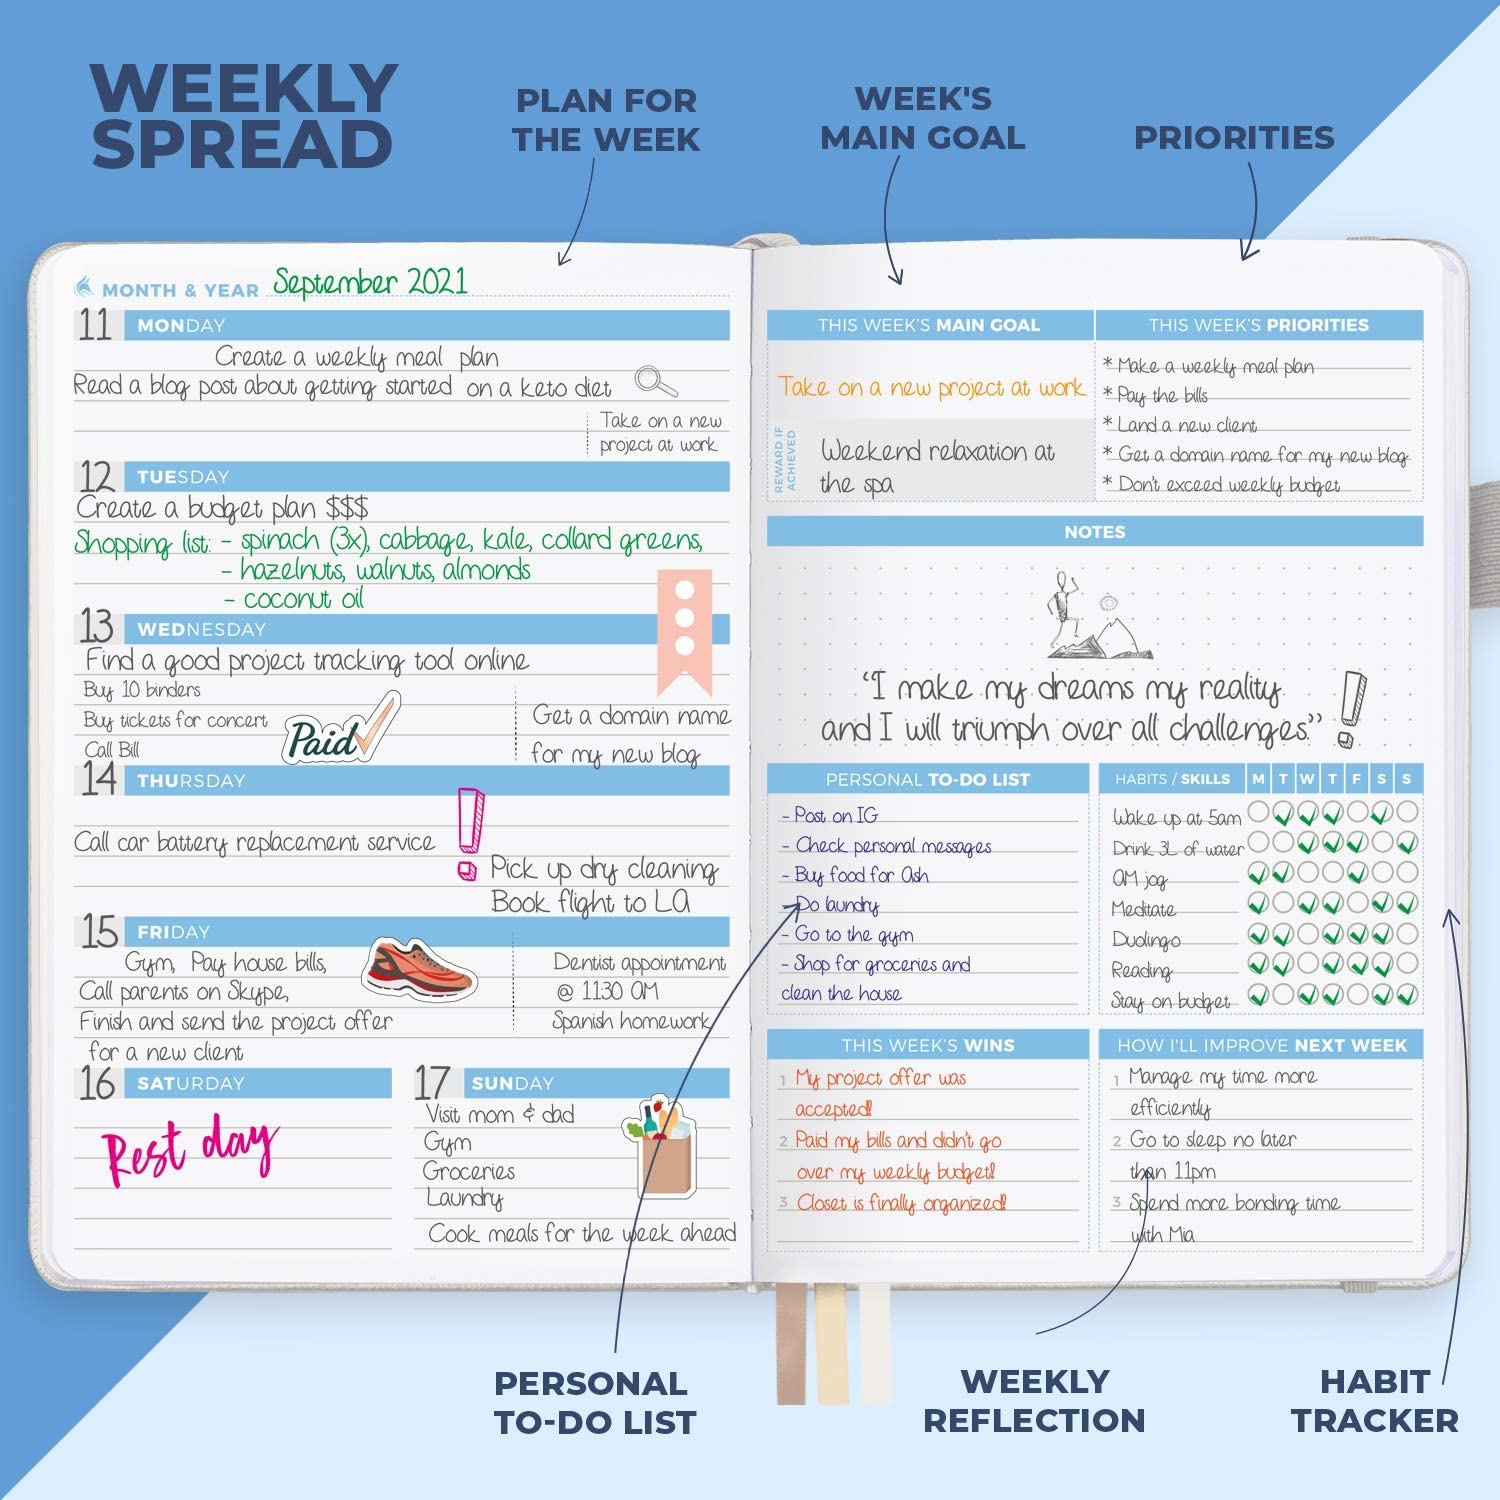 WEEKLY
SPREAD
PLAN FOR
THE WEEK
WEEK'S
MAIN GOAL
PRIORITIES
MONTH & YEAR September 2021
11 MONDAY
Create a weekly meal plan
Read a blog post about getting started on a keto diet
Take on a new
project at work
12 TUESDAY
Create a budget plan $$$
Shopping list: - spinach (3x), cabbage, kale, collard greens,
- hazelnuts, walnuts, almonds
- coconut oil
13 WEDNESDAY
Find a good project tracking tool online
Buy 10 binders
Buy tickets for concert
Call Bill
Paid
Get a domain name
for my new blog
14 THURSDAY
Call car battery replacement service
Pick up dry cleaning
Book flight to LA
15 FRIDAY
Gym, Pay house bills,
Call parents on Skype,
Finish and send the project offer
for a new client
Dentist appointment
@ 1130 AM
Spanish homework
16 SATURDAY
Rest day
17 SUNDAY
Visit mom & dad
Gym
Groceries
Laundry
Cook meals for the week ahead
THIS WEEK'S MAIN GOAL
Take on a new project at work
REWARD IF
ACHIEVED
Weekend relaxation at
the spa
THIS WEEK'S PRIORITIES
* Make a weekly meal plan
* Pay the bills
* Land a new client
* Get a domain name for my new blog
* Don't exceed weekly budget
NOTES
"I make my dreams my reality
and I will triumph over all challenges."
PERSONAL TO-DO LIST
- Post on IG
- Check personal messages
- Buy food for Ash
- Do laundry
- Go to the gym
- Shop for groceries and
clean the house
HABITS / SKILLS M T W T F S S
Wake up at 5am
Drink 3L of water
AM jog
Meditate
Duolingo
Reading
Stay on budget
THIS WEEK'S WINS
1 My project offer was
accepted!
2 Paid my bills and didn't go
over my weekly budget!
3 Closet is finally organized!
HOW I'LL IMPROVE NEXT WEEK
1 Manage my time more
efficiently
2 Go to sleep no later
than 11pm
3 Spend more bonding time
with Mia
PERSONAL
TO-DO LIST
WEEKLY
REFLECTION
HABIT
TRACKER